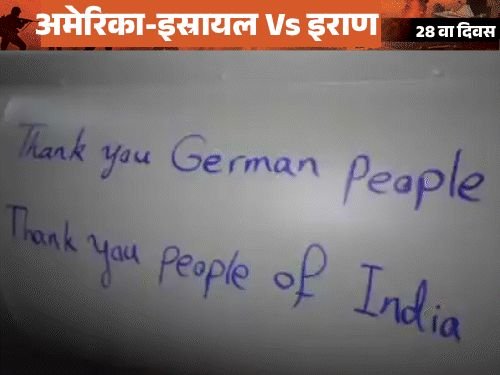 अमेरिका-इस्रायल Vs इराण
28 वा दिवस
Thank you German People
Thank you people of India